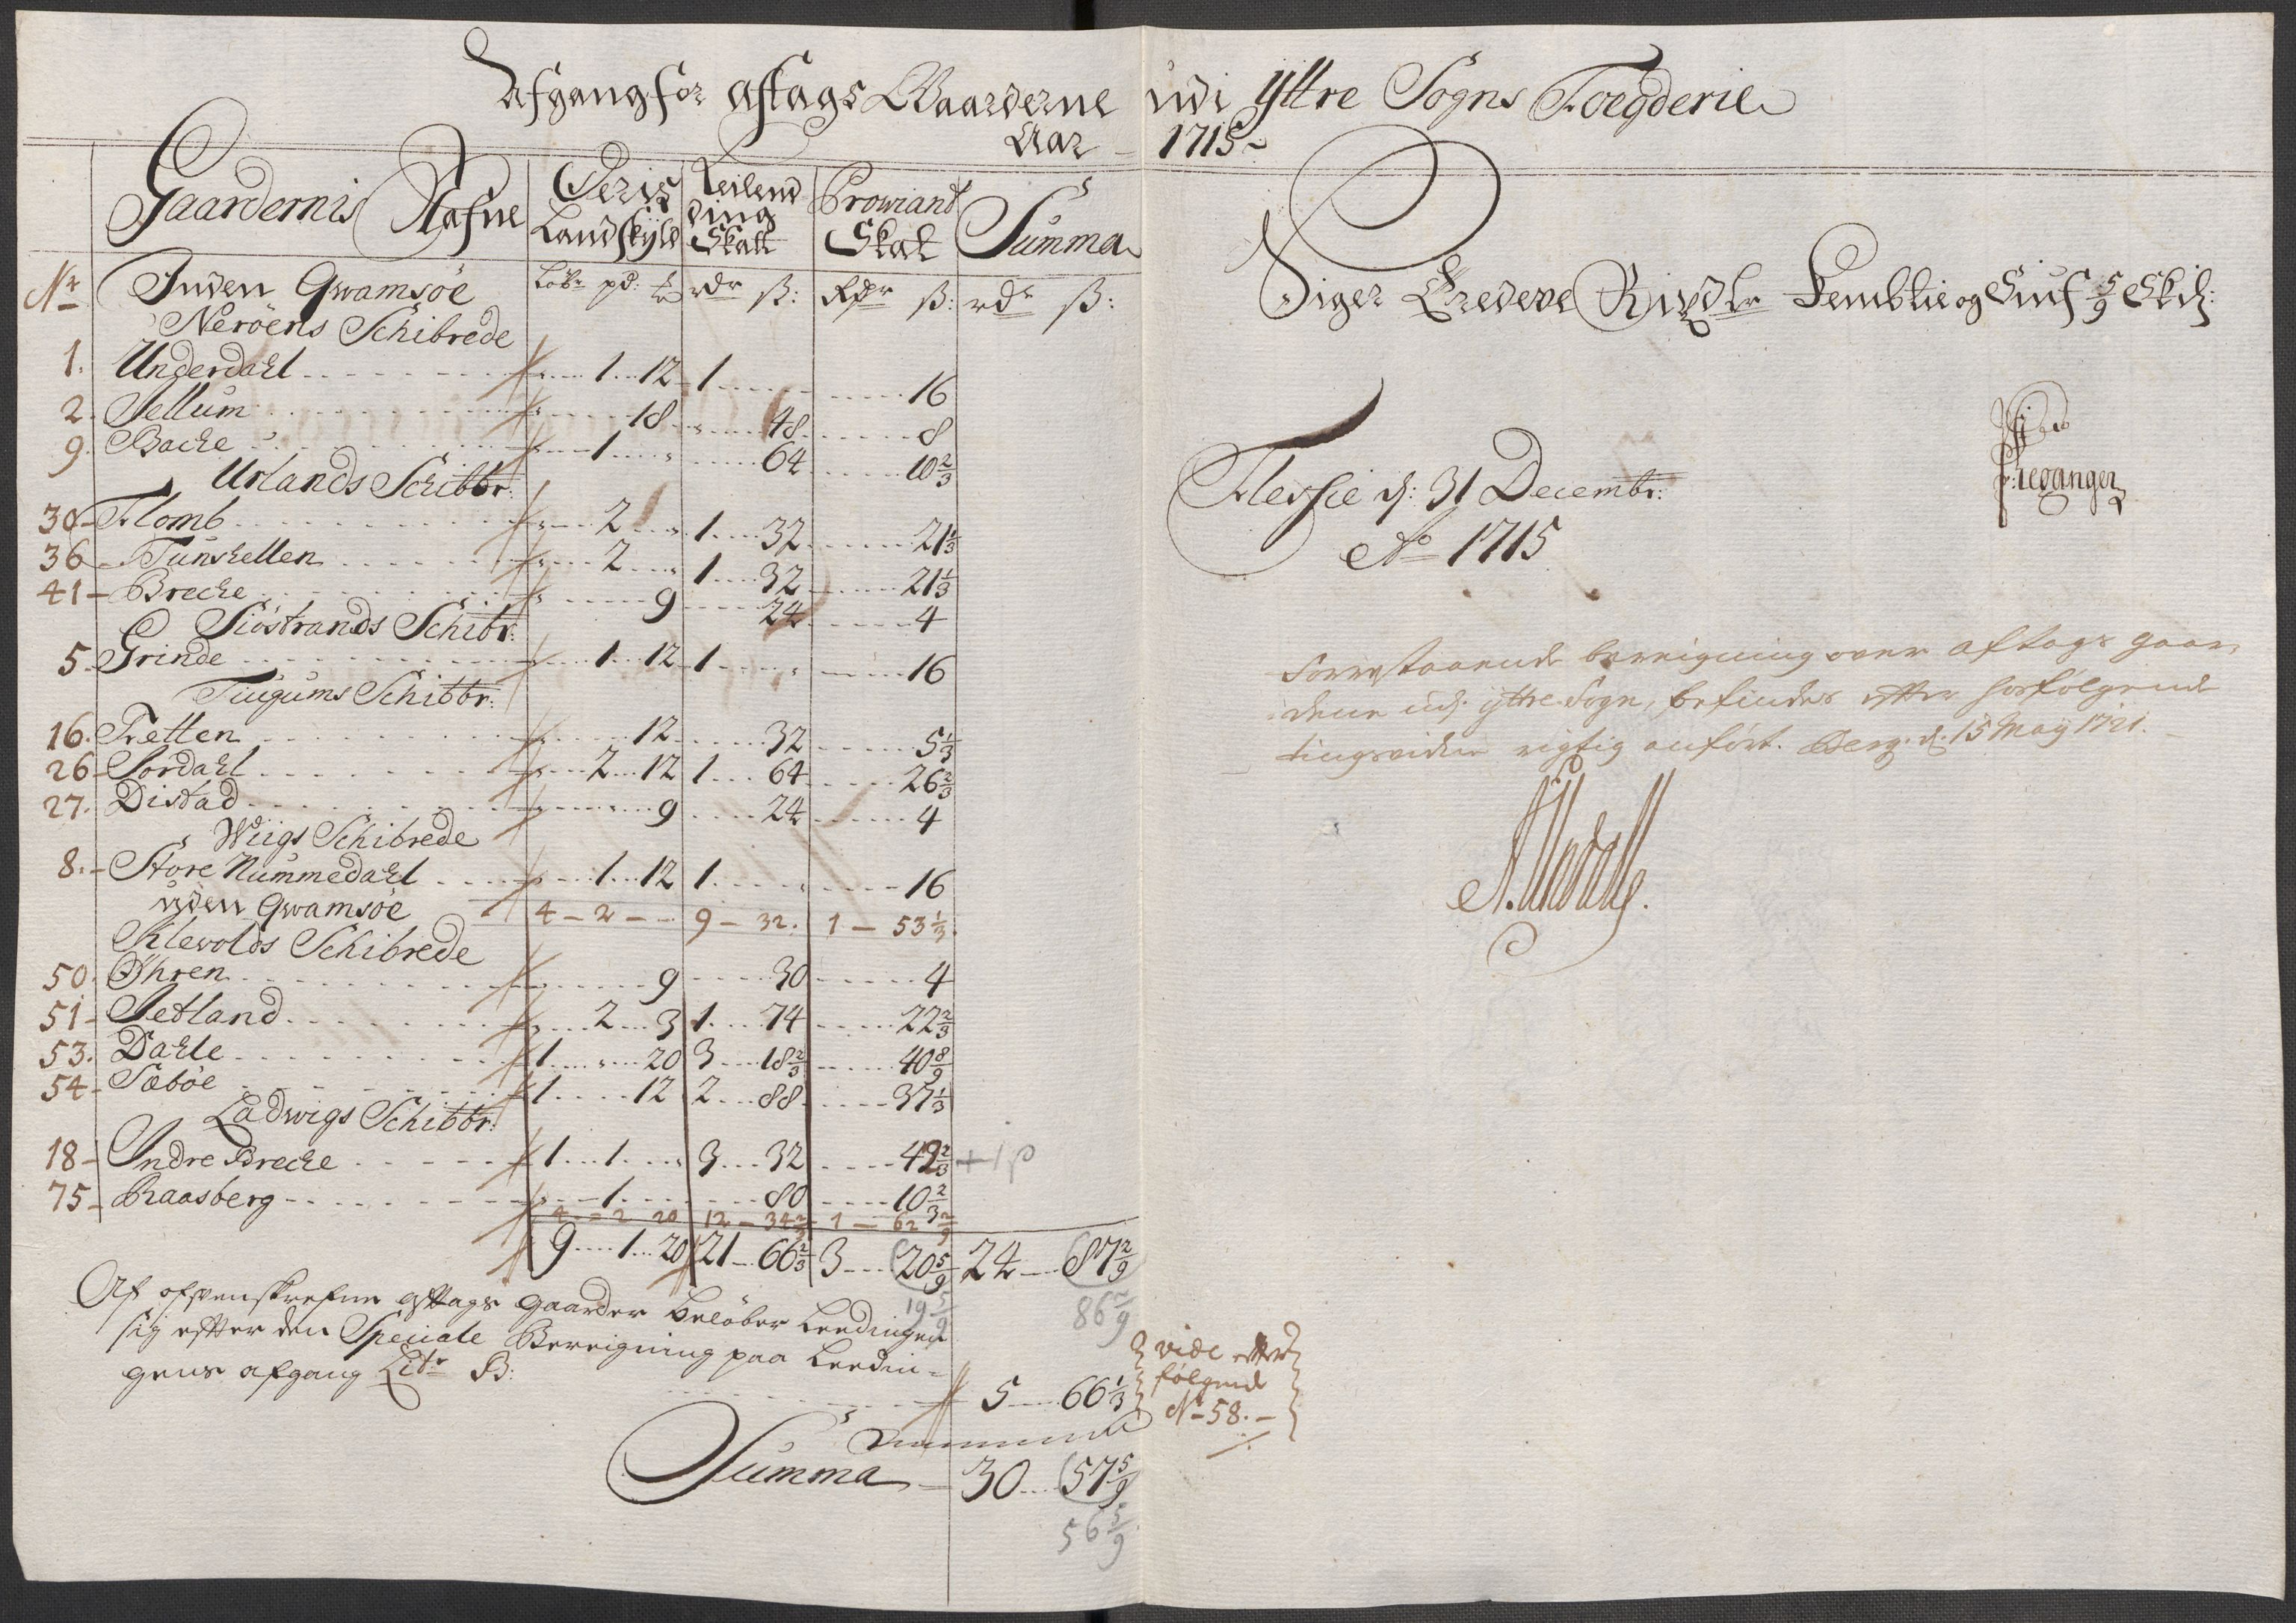 Afgang for aftags Gaarderne udi Yttre Sogns Foegderie
Aar 1715
Gaardernis Nafne | Deris Landskyld | Leilending Skatt | Prowiant Skat | Summa
Nr Inden Qwamsöe | Löbr pd: | rdr ß: | Rdr ß: | rdr ß:
Neröens Schibrede
1. Underdahl 1 12 | 1 | 16
2. Jellum 18 | 48 | 8
9. Backe 1 | 64 | 10 2/3
Urlands Schibbr:
30 Flomb 2 | 1 32 | 21 1/3
36 Tunshellen 2 | 1 32 | 21 1/3
41 Breche 9 | 24 | 4
Siöstrands Schibr:
5 Grinde 1 12 | 1 | 16
Tiugums Schibbr:
16. Tretten 12 | 32 | 5 1/3
26 Sordahl 2 12 | 1 64 | 26 2/3
27. Distad 9 | 24 | 4
Wiigs Schibrede
8. Store Nummedahl 1 12 | 1 | 16
uden Qwamsöe 4 - 2 - | 9 - 32. | 1 - 53 1/3.
Klevolds Schibrede
50. Öhren 9 | 30 | 4
51 Jetland 2 3 | 1 74 | 22 2/3
53. Dahle 1 20 | 3 18 2/3 | 40 8/9
54 Sæböe 1 12 | 2 88 | 37 1/3
Ladwigs Schibbr:
18 Indre Breche 1 1 | 3 32 | 42 2/3 + 1 ß
75 Raasberg 1 | 80 | 10 2/3
4 - 2 20 | 12 - 34 2/3 | 1 - 62 2/9
9 1 20 | 21 66 2/3 | 3 20 5/9 | 24 87 2/9
19 5/9 86 2/9
Af ofvenskrefne aftags gaarder belöber Leedingen
sig efter den Speciale Bereigning paa Leedin-
gens afgang Litr B:
5 66 1/3
vide efter
følgende
No 58.
Summa 30 57 5/9
56 5/9
Siger Tredeve Rixdlr Femblie og Siuf 5/9 Skil:
Flessie d: 31 Decembr:
Ao 1715
Forrestaaende bereigning over aftags gaar,
dene udj yttre Sogn, befindes efter hosfølgende
tingsvidne rigtig anført. Berg. d. 15 May 1721.